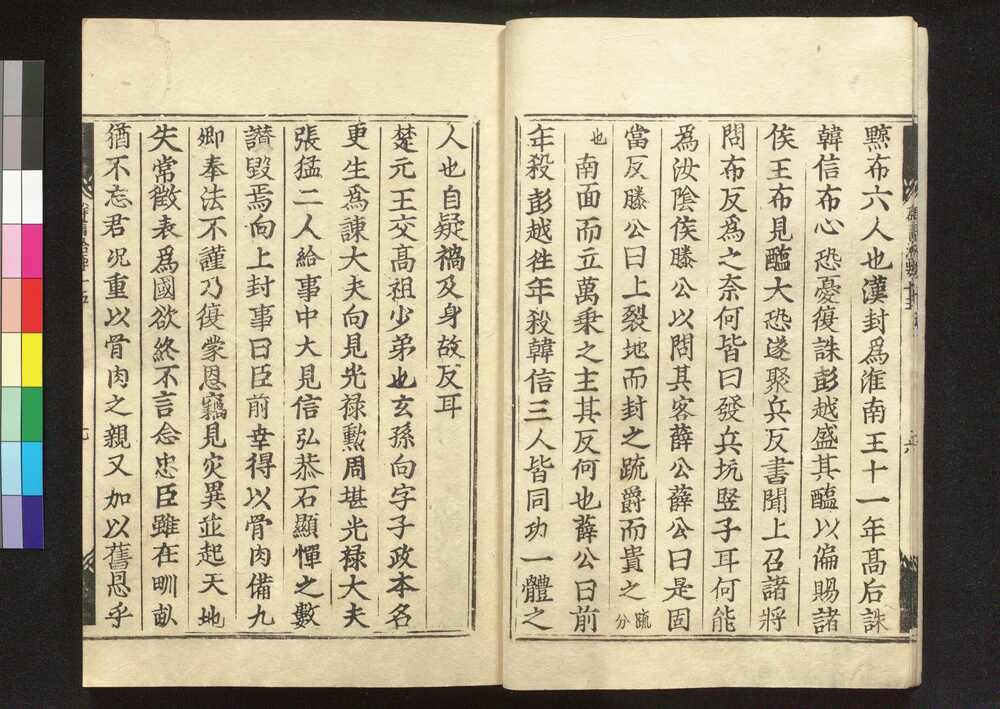 黥布六人也漢封爲淮南王十一年高后誅
韓信布心恐憂復誅彭越盛其醢以徧賜諸
侯王布見醢大恐遂聚兵反書聞上召諸將
問布反爲之奈何皆曰發兵坑竪子耳何能
爲汝陰侯滕公以問其客薛公薛公曰是固
當反滕公曰上裂地而封之䟽爵而貴之䟽分
也南面而立萬乗之主其反何也薛公曰前
年殺彭越徃年殺韓信三人皆同功一體之
人也自疑禍及身故反耳
楚元王交髙祖少弟也玄孫向字子政本名
更生爲諫大夫向見光禄勲周堪光禄大夫
張猛二人給事中大見信弘恭石顯憚之數
譛毁焉向上封事曰臣前幸得以骨肉備九
卿奉法不謹乃復蒙恩竊見灾異並起天地
失常徵表爲國欲終不言念忠臣雖在甽畝
猶不忘君况重以骨肉之親又加以舊恩乎